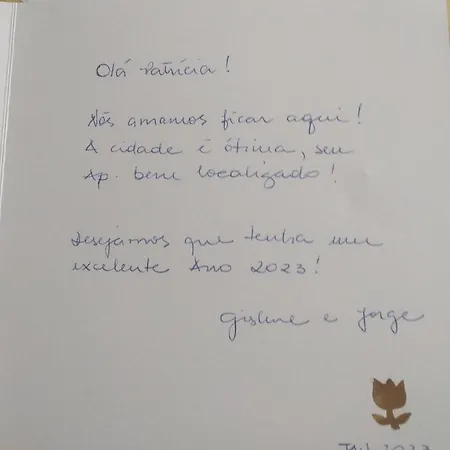 Olá Patrícia!
Nós amamos ficar aqui!
A cidade é ótima, seu
Ap. bem localizado!
Desejamos que tenha um
excelente Ano 2023!
Gislene e Jorge
2023